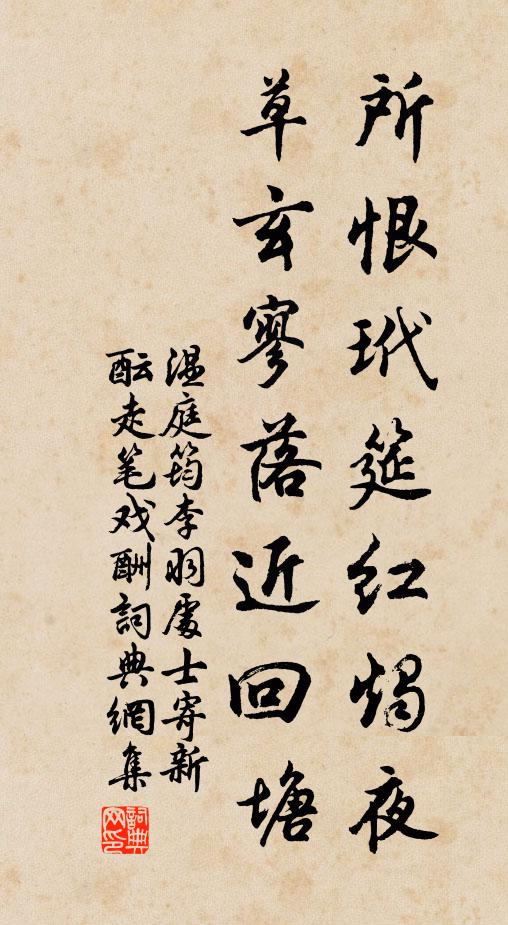 所恨玳筵红烛夜
草玄寥落近回塘
温庭筠李羽处士寄新
酝走笔戏酬詞典網集
詞典
网印